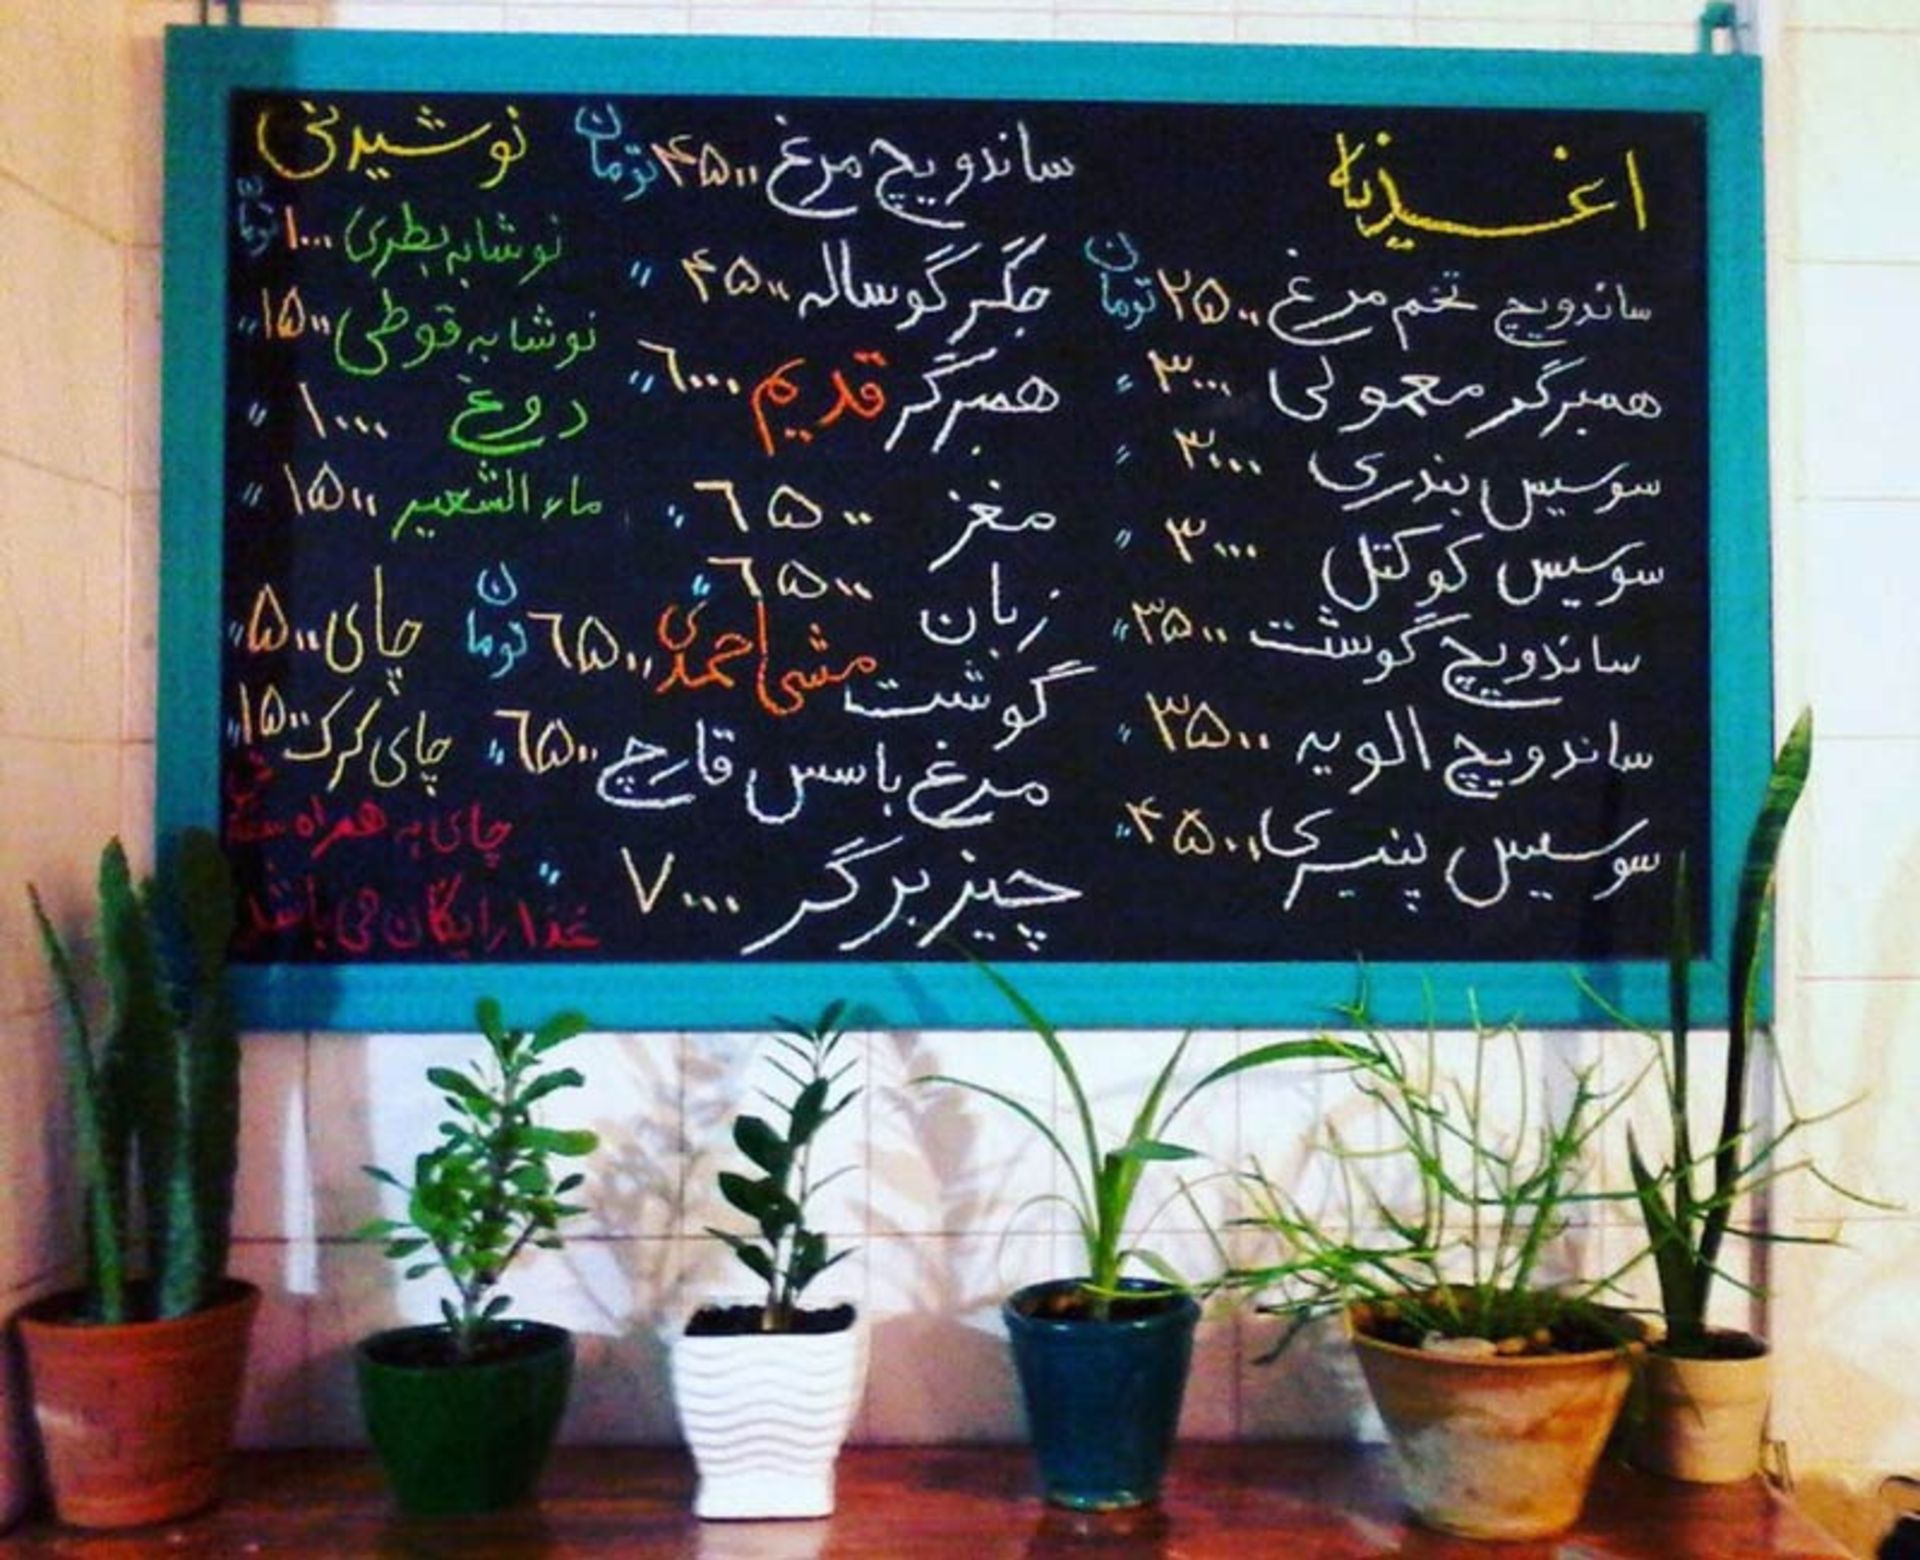 اغذیه
ساندویچ تخم مرغ ۲۵۰۰ تومان
همبرگر معمولی ۳۰۰۰ "
سوسیس بندری ۳۰۰۰ "
سوسیس کوکتل ۳۰۰۰ "
ساندویچ گوشت ۳۵۰۰ "
ساندویچ الویه ۳۵۰۰ "
سوسیس پنیری ۴۵۰۰ "
ساندویچ مرغ ۴۵۰۰ تومان
جگر گوساله ۴۵۰۰ "
همبرگر قدیم ۶۰۰۰ "
مغز ۶۵۰۰ "
زبان ۶۵۰۰ "
گوشت مشی احمدی ۶۵۰۰ تومان
مرغ با سس قارچ ۶۵۰۰ "
چیزبرگر ۷۰۰۰ "
نوشیدنی
نوشابه بطری ۱۰۰۰ تومان
نوشابه قوطی ۱۵۰۰ "
دوغ ۱۰۰۰ "
ماء الشعیر ۱۵۰۰ "
چای ۵۰۰ "
چای کرک ۱۵۰۰ "
چای به همراه
غذا رایگان می باشد